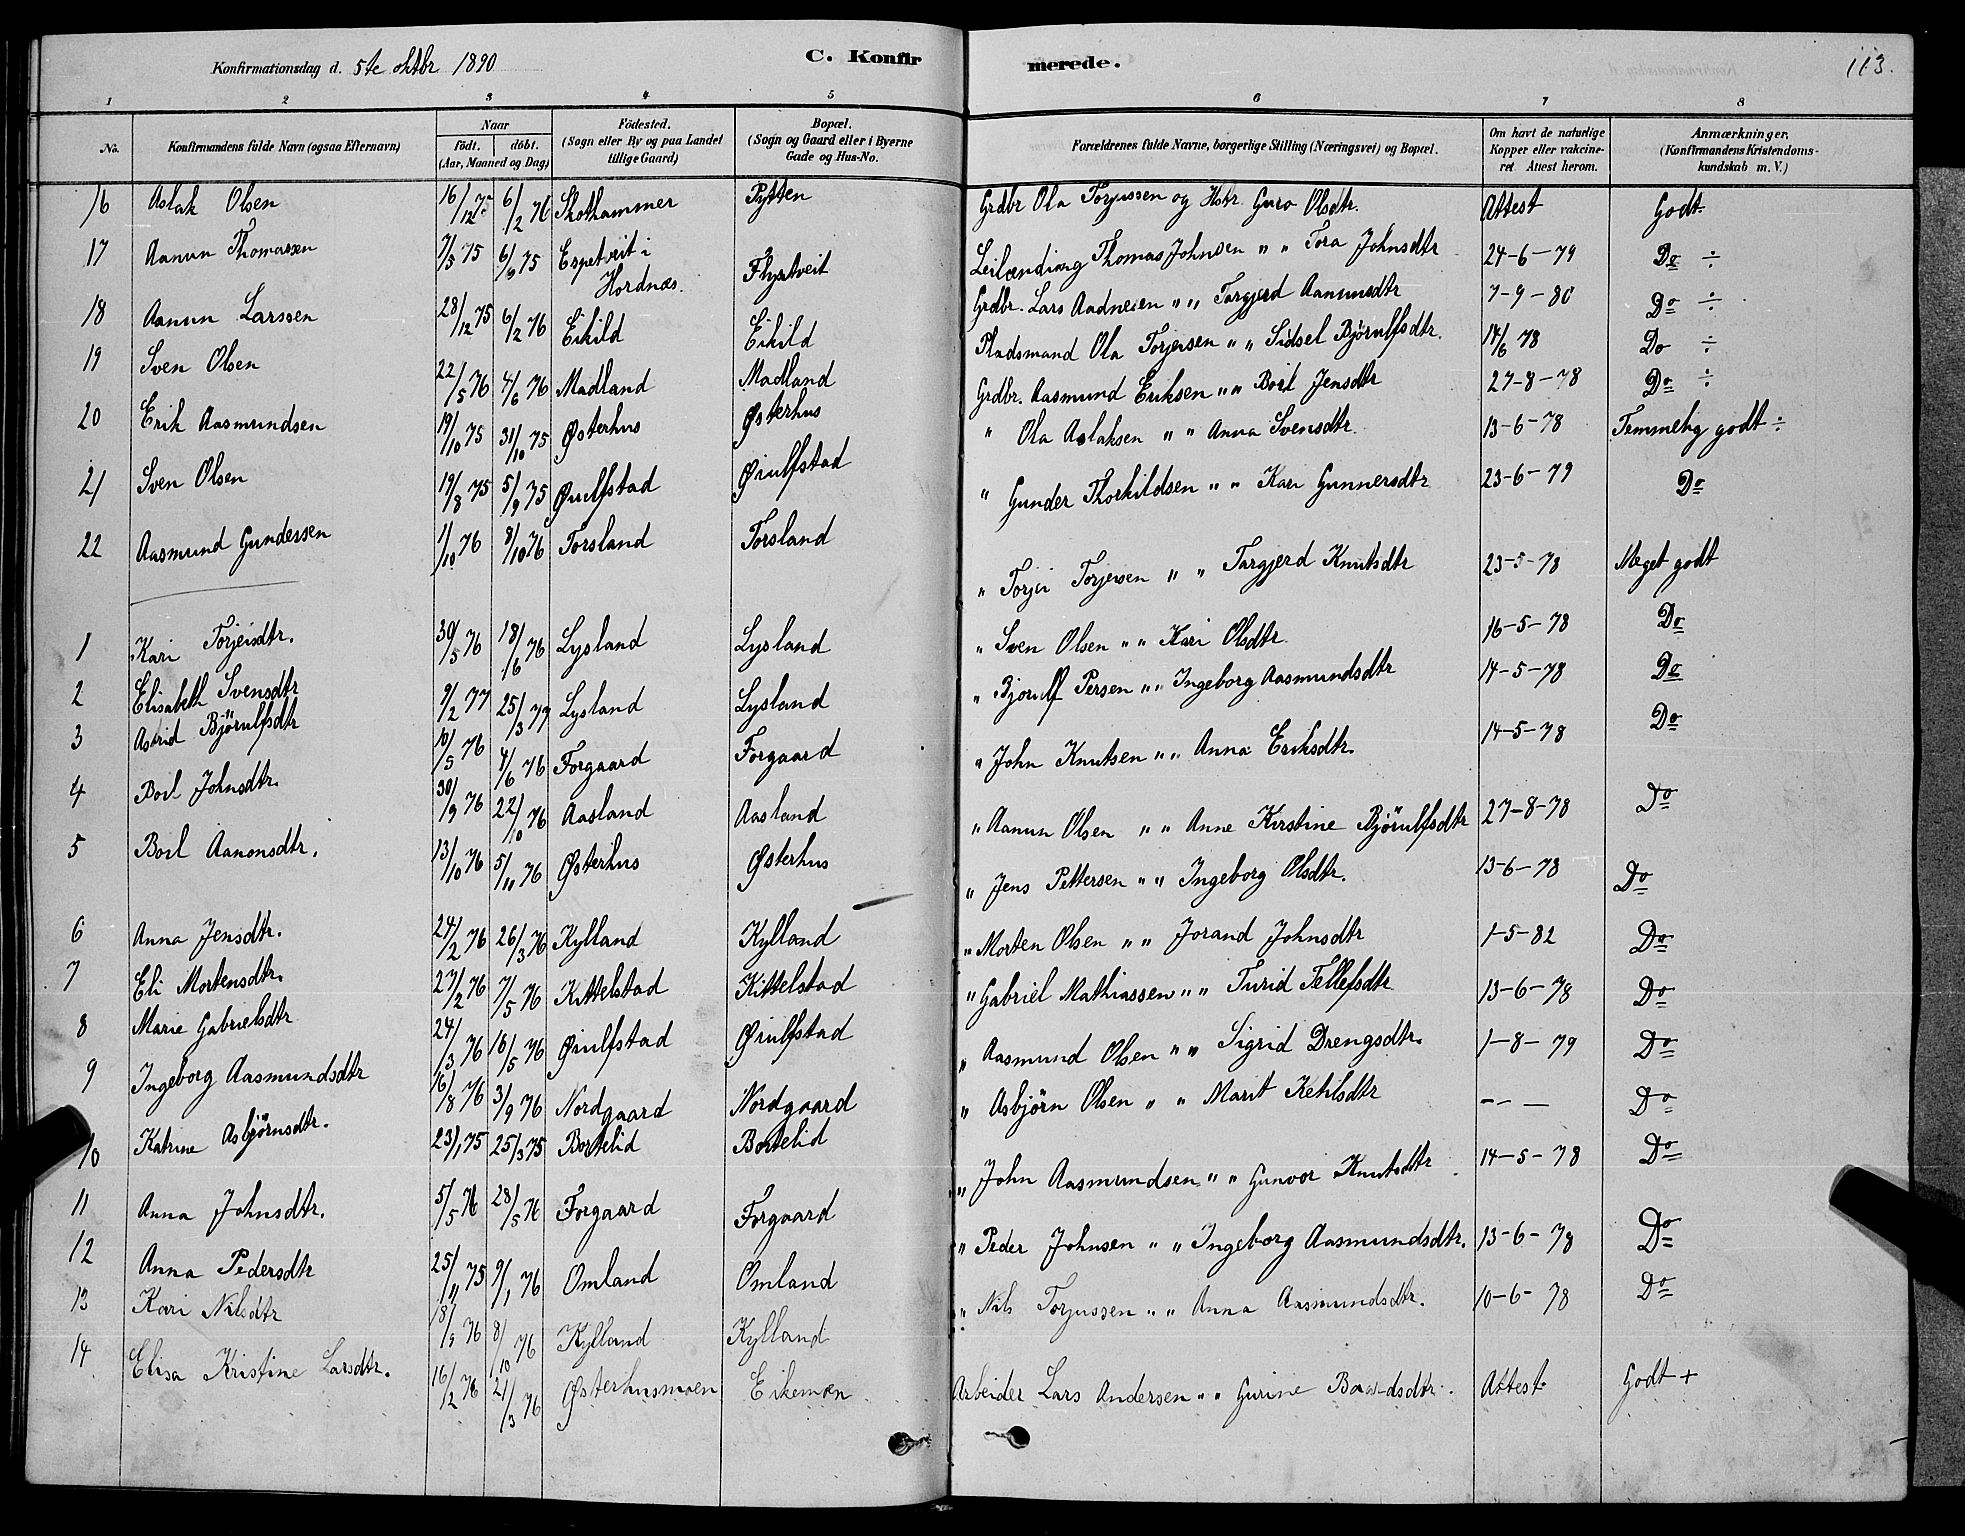 Konfirmationsdag d. 5te oktbr 1890 C. Konfirmerede. 113.
1 2 3 4 5 6 7 8
No. Konfirmandens fulde Navn (ogsaa Efternavn) Naar födt. döbt. (Aar, Maaned og Dag) Födested. (Sogn eller By og paa Landet tillige Gaard) Bopæl. (Sogn og Gaard eller i Byerne Gade og Hus-No. Forældrenes fulde Navne, borgerlige Stilling (Næringsvei) og Bopæl. Om havt de naturlige Kopper eller vakcineret Attest herom. Anmærkninger. (Konfirmandens Kristendomskundskab m. V.)
16 Aslak Olsen 16/12 75 6/2 76 Skothammer Pytten Grdbr Ola Torjussen og Hstr. Guro Olsdtr. Attest Godt
17 Aanun Thomassen 7/5 75 6/6 75 Espetveit i Hordnæs. Flystveit Leilænding Thomas Johnsen " " Tora Johnsdtr 24-6-79 Do ÷
18 Aanun Larssen 28/12 75 6/2 76 Eikild Eikild Grdbr. Lars Aadnesen " " Torgjerd Aanunsdtr 7-9-80 Do ÷
19 Sven Olsen 22/5 76 4/6 76 Madland Madland Pladsmand Ola Torjersen " " Sidsel Bjørulfsdtr. 14/6 78 Do ÷
20 Erik Aasmundsen 19/10 75 31/10 75 Østerhus Østerhus Grdbr. Aasmund Eriksen " " Boil Jensdtr 27-8-78 Do ÷
21 Sven Olsen 19/8 75 5/9 75 Øiulfstad Øiulfstad " Ola Aslaksen " " Anna Svensdtr. 13-6-78 Temmelig godt ÷
22 Aasmund Gundersen 1/10 76 8/10 76 Torsland Torsland " Gunder Thorkildsen " " Kari Gunnersdtr 23-6-79 Do
1 Kari Torjeisdtr. 30/5 76 18/6 76 Lysland Lysland " Torjei Torjeisen " " Targjerd Knutsdtr 23-5-78 Meget godt
2 Elisabeth Svensdtr 9/2 77 25/3 77 Lysland Lysland " Sven Olsen " " Kari Olsdtr. 16-5-78 Do
3 Astrid Björulfsdtr 10/5 76 4/6 76 Forgaard Forgaard " Bjorulf Persen " " Ingeborg Aasmundsdtr 14-5-78 Do
4 Boil Johnsdtr. 30/9 76 22/10 76 Aasland Aasland " John Knutsen " " Anna Eriksdtr. 14-5-78 Do
5 Boil Aanonsdtr. 13/10 76 5/11 76 Østerhus Østerhus " Aanun Olsen " " Anne Kirstine Bjørulfsdtr 27-8-78 Do
6 Anna Jensdtr. 24/2 76 26/3 76 Kylland Kylland " Jens Pettersen " " Ingeborg Olsdtr. 13-6-78 Do
7 Eli Mortensdtr. 27/2 76 7/5 76 Kittelstad Kittelstad " Morten Olsen " " Jorand Johnsdtr 1-5-82 Do
8 Marie Gabrielsdtr 24/3 76 16/5 76 Øiulfstad Øiulfstad " Gabriel Mathiassen " " Turid Tellefsdtr 13-6-78 Do
9 Ingeborg Aasmundsdtr 16/8 76 3/9 76 Nordgaard Nordgaard " Aasmund Olsen " " Sigrid Drengsdtr. 1-8-79 Do
10 Katrine Asbjørnsdtr. 23/1 75 25/3 75 Bortelid Bortelid " Asbjörn Olsen " " Marit Ketilsdtr - - - Do
11 Anna Johnsdtr. 5/5 76 28/5 76 Forgaard Forgaard " John Aasmundsen " " Gunvor Knutsdtr 14-5-78 Do
12 Anna Pedersdtr 25/11 75 9/1 76 Omland Omland " Peder Johnsen " " Ingeborg Aasmundsdtr. 13-6-78 Do
13 Kari Nilsdtr 18/9 76 8/10 76 Kylland Kylland " Nils Torjussen " " Anna Aasmundsdtr. 10-6-78 Do
14 Elisa Kristine Larsdtr. 16/2 76 21/3 76 Østerhusmoen Eikemoen Arbeider Lars Andersen " " Gurine Attest Godt +